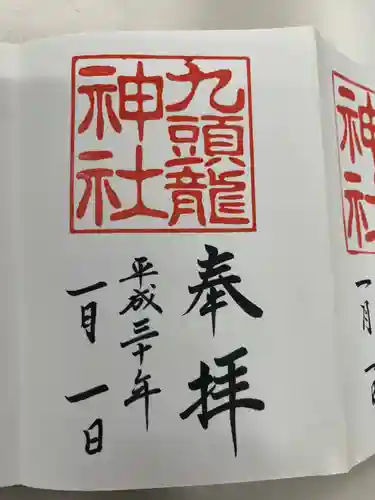 神社
一月
九頭龍
神社
奉拝
平成三十年
一月一日